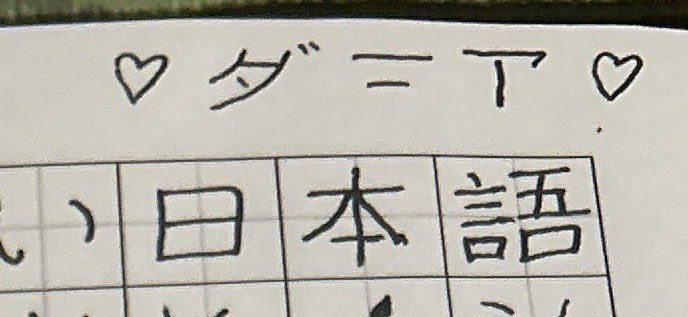 ♡ ダニア ♡
い日本語